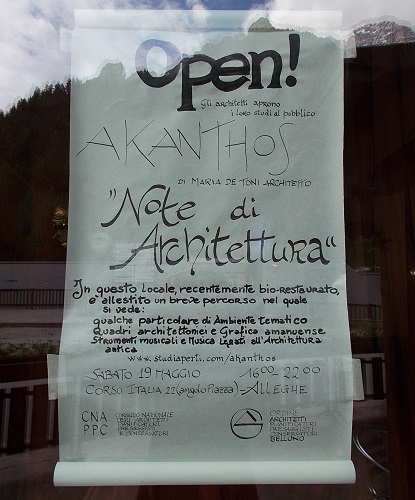 Open!
Gli architetti aprono
i loro studi al pubblico
AKANTHOS
DI MARIA DE TONI ARCHITETTO
"Note di
Architettura"
In questo locale, recentemente bio-restaurato,
e' allestito un breve percorso nel quale
si vede:
qualche particolare di Ambiente tematico
Quadri architettonici e Grafica amanuense
Strumenti musicali e Musica Legati all'Architettura
antica
www.studiaperti.com/akanthos
SABATO 19 MAGGIO 16:00 22:00
CORSO ITALIA 22 (angolo Piazza) - ALLEGHE
CNA
PPC
CONSIGLIO NAZIONALE
DEGLI ARCHITETTI
PIANIFICATORI
PAESAGGISTI
E CONSERVATORI
ORDINE
ARCHITETTI
PIANIFICATORI
PAESAGGISTI
CONSERVATORI
BELLUNO